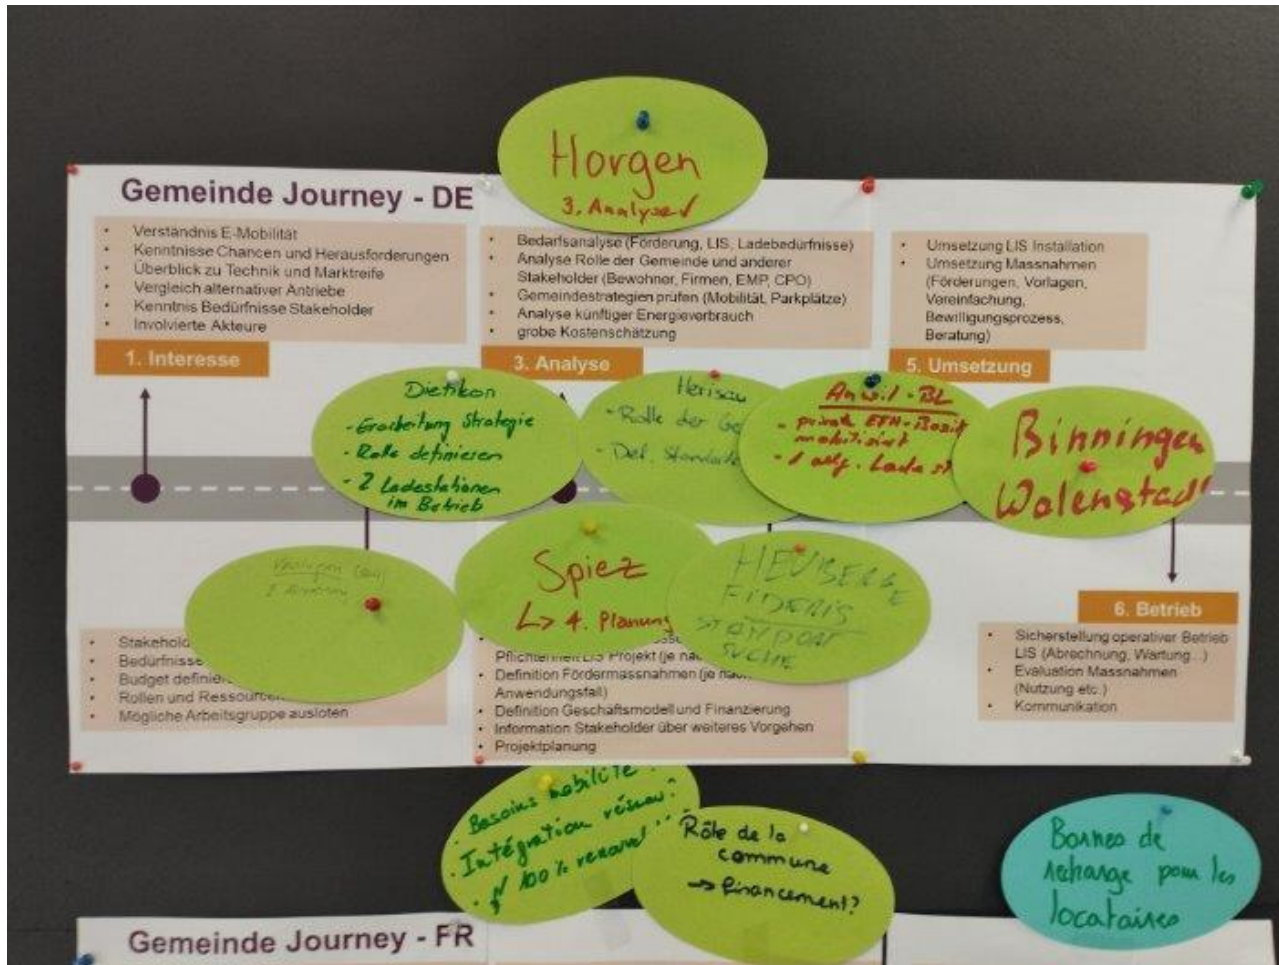 Horgen
3. Analyse ✓
Gemeinde Journey - DE
• Verständnis E-Mobilität
• Kenntnisse Chancen und Herausforderungen
• Überblick zu Technik und Marktreife
• Vergleich alternativer Antriebe
• Kenntnis Bedürfnisse Stakeholder
• Involvierte Akteure
1. Interesse
• Bedarfsanalyse (Förderung, LIS, Ladebedürfnisse)
• Analyse Rolle der Gemeinde und anderer
Stakeholder (Bewohner, Firmen, EMP, CPO)
• Gemeindestrategien prüfen (Mobilität, Parkplätze)
• Analyse künftiger Energieverbrauch
• grobe Kostenschätzung
3. Analyse
• Umsetzung LIS Installation
• Umsetzung Massnahmen
(Förderungen, Vorlagen,
Vereinfachung,
Bewilligungsprozess,
Beratung)
5. Umsetzung
Dietikon
- Erarbeitung Strategie
- Rolle definieren
- 2 Ladestationen
im Betrieb
Herisau
- Rolle der Ge
- Def. Standorte
Anwil - BL
- private EFH-Besit
mobilisiert
- 1 allg. Lade st
Binningen
Walenstadt
Spiez
↳ 4. Planung
HEUBERGE
FIDERIS
STANDORT
SUCHE
• Stakehold
• Bedürfnisse
• Budget definie
• Rollen und Ressourcen
• Mögliche Arbeitsgruppe ausloten
Pflichtenheft LIS Projekt (je nac
• Definition Fördermassnahmen (je nach
Anwendungsfall)
• Definition Geschäftsmodell und Finanzierung
• Information Stakeholder über weiteres Vorgehen
• Projektplanung
6. Betrieb
• Sicherstellung operativer Betrieb
LIS (Abrechnung, Wartung...)
• Evaluation Massnahmen
(Nutzung etc.)
• Kommunikation
• Besoins mobilité
• Intégration réseau?
100% renouvel
Rôle de la
commune
→ financement?
Bornes de
recharge pour les
locataires
Gemeinde Journey - FR